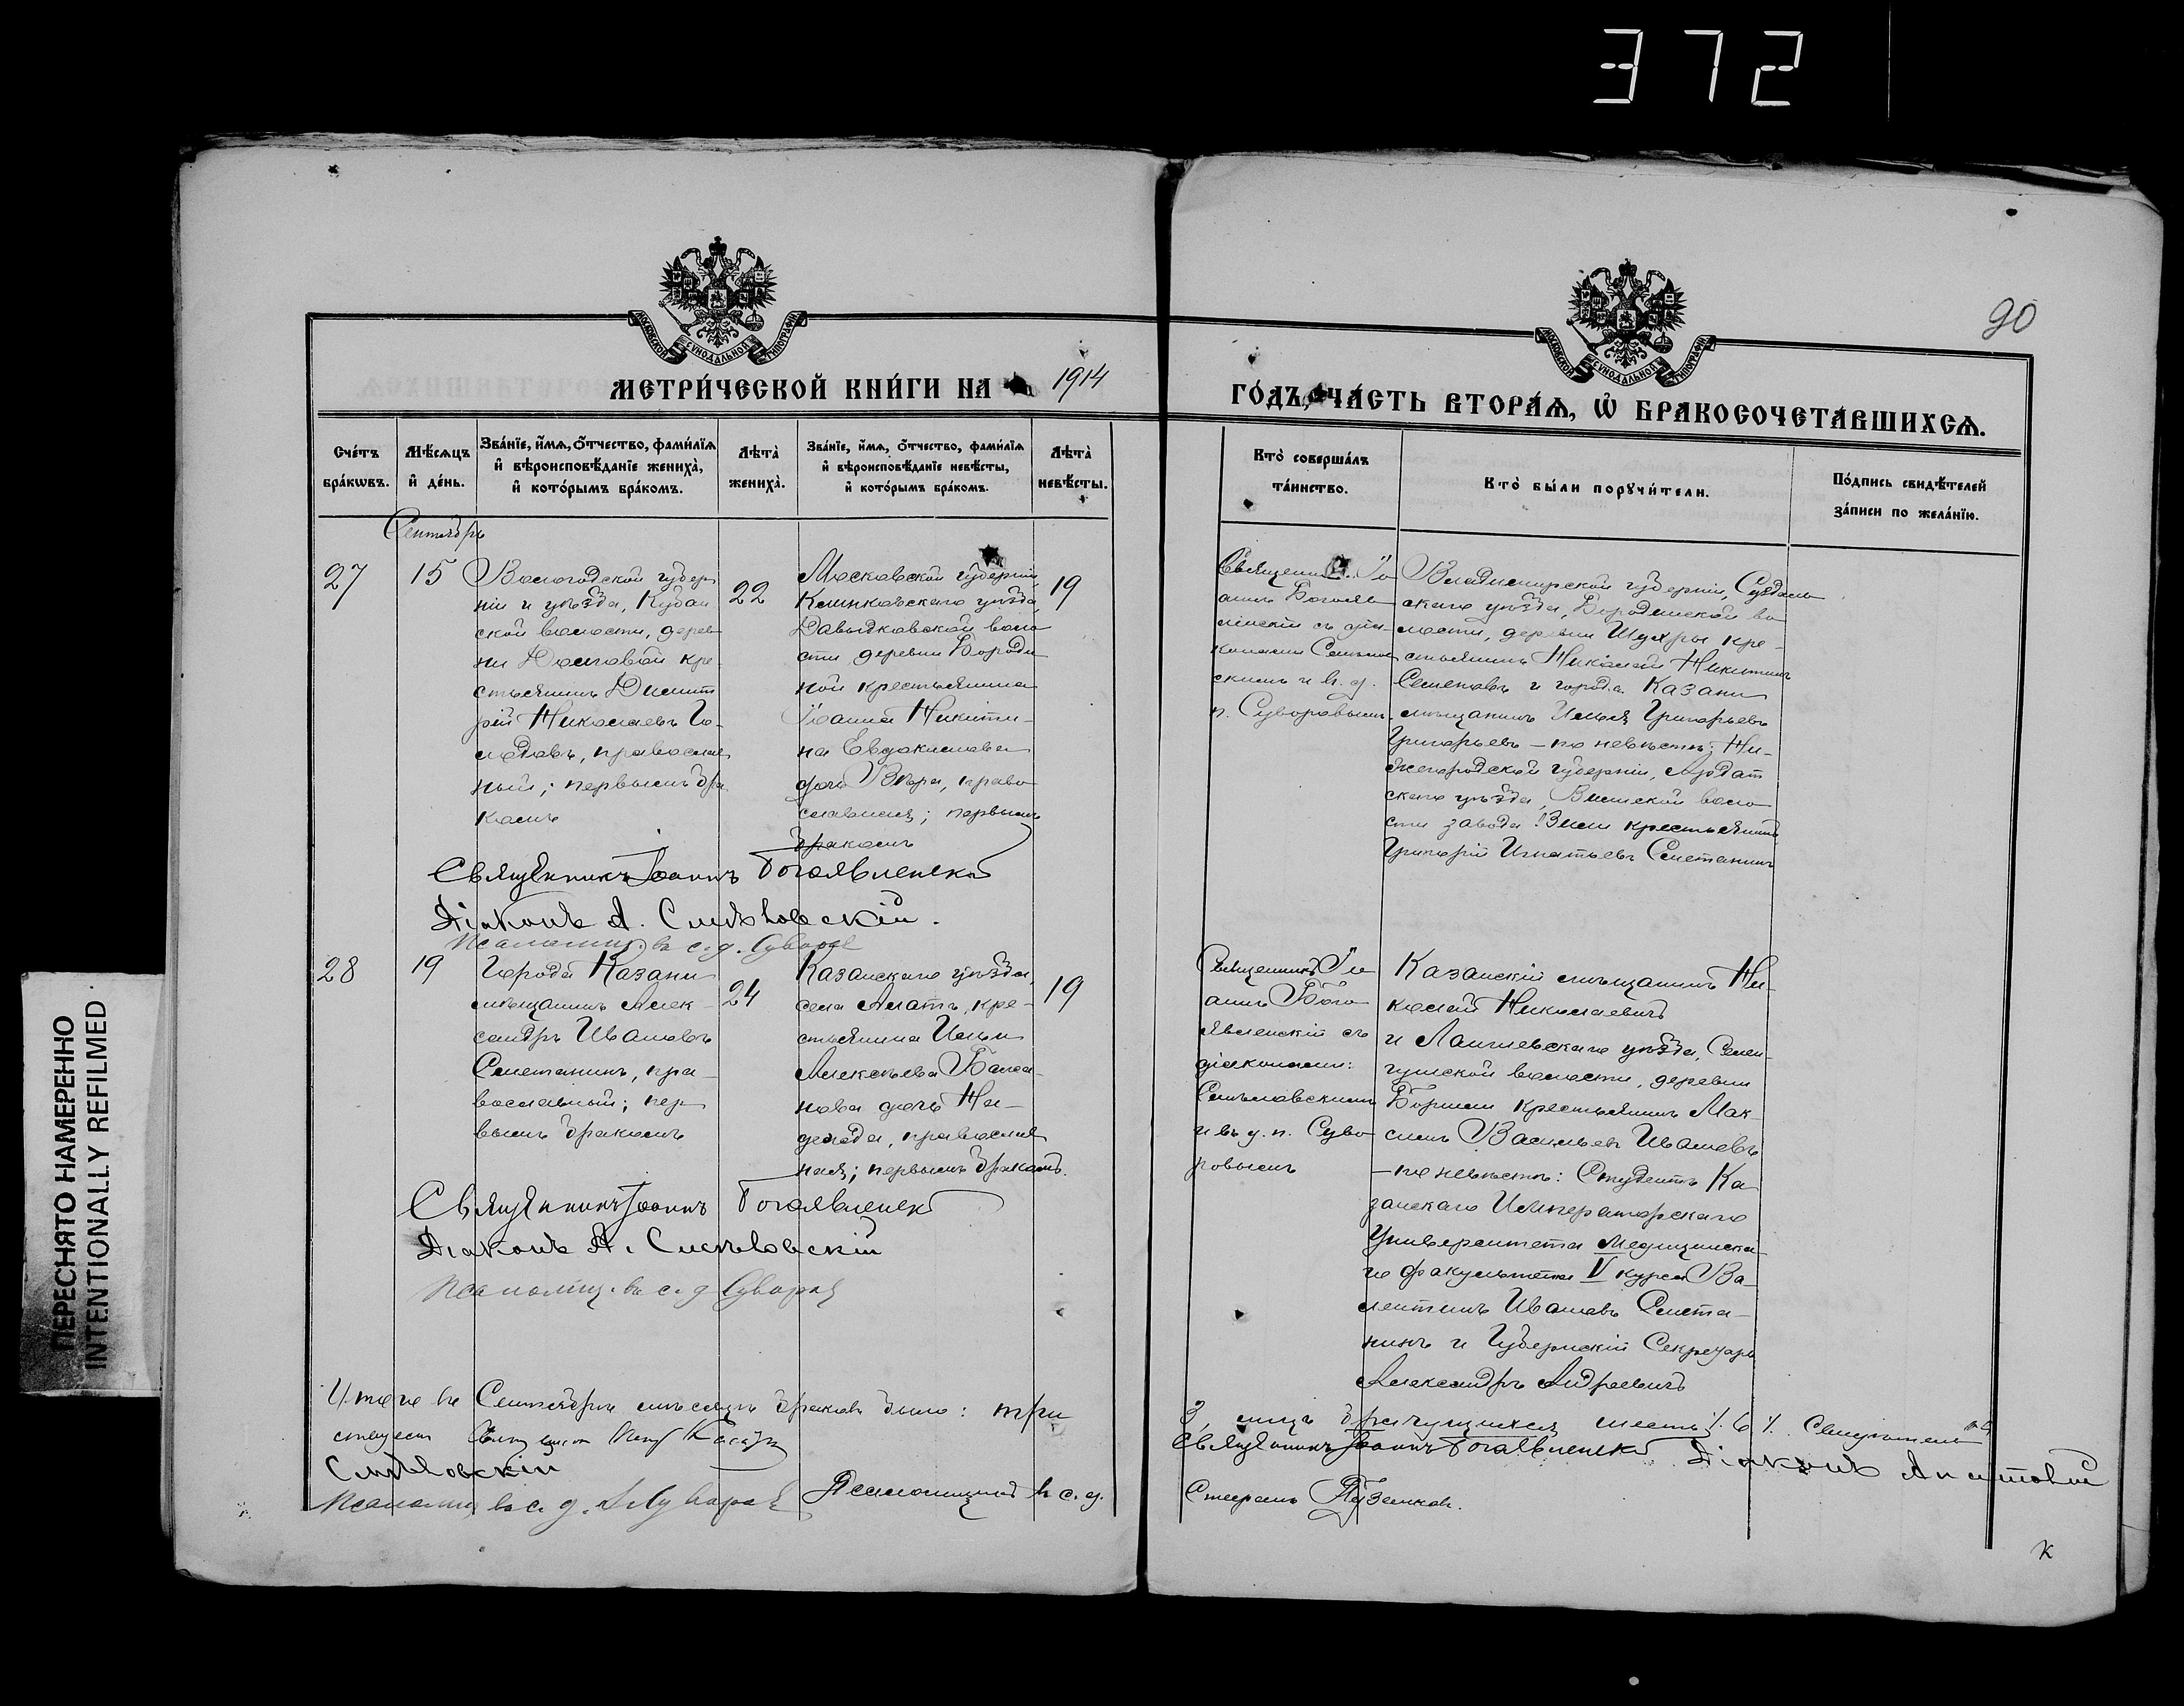 372
90
МЕТРИ́ЧЕСКОЙ КНИ́ГИ НА 1914
ГО́ДЪ, ЧА́СТЬ ВТОРА́Ѧ, Ѽ БРАКОСОЧЕТА́ВШИХСѦ.
Сче́тъ бра́кѡвъ.
Мѣ́сѧцъ и҆ де́нь.
Зва́нїе, и҆́мѧ, ѻ҆́тчество, фами́лїѧ и҆ вѣроисповѣ́данїе жениха̀, и҆ кото́рымъ бра́комъ.
Лѣ́та̀ жениха̀.
Зва́нїе, и҆́мѧ, ѻ҆́тчество, фами́лїѧ и҆ вѣроисповѣ́данїе невѣ́сты, и҆ кото́рымъ бра́комъ.
Лѣ́та̀ невѣ́сты.
Кто̀ соверша́лъ та́инство.
Кто̀ бы́ли порꙋчи́тели.
По́дпись свидѣ́телей за́писи по жела́нїю.
Сентябрь
27
15
Вологодской губер
ніи и уѣзда, Кубен
ской волости, дерев
ни
кре-
стьянинъ Димит
рій Николаевъ Го-
ловъ, православ
ный; первымъ бра
комъ
22
Московской губерніи,
уѣзда,
Давыдковской воло
сти деревни Бороди
ной крестьянина
Іоанна Никити-
на Евдокимова
дочь Вѣра, право
славная; первымъ
бракомъ
19
Священникъ Іо
аннъ Богояв
ленскій съ діа-
кономъ Смѣлов
скимъ и в. д.
п. Суворовымъ.
Владимирской губерніи, Суздаль
скаго уѣзда, Бородинской во
лости, деревни Шухры кре-
стьянинъ Николай Никитинъ
Семеновъ и города Казани
мѣщанинъ Илья Григорьевъ
Григорьевъ – по невѣстѣ; Ни-
жегородской губерніи, Ардат
скаго уѣзда, Вилеской воло
сти завода Вили крестьянинъ
Григорій Игнатьевъ Сметанинъ
Священникъ Іоаннъ Богоявленскій
Діаконъ А. Смѣловскій.
Псаломщ. в. с. д. Суворов
28
19
Города Казани
мѣщанинъ Алек-
сандръ Ивановъ
Сметанинъ, пра-
вославный; пер
вымъ бракомъ
24
Казанскаго уѣзда,
села Алатъ, кре-
стьянина Ильи
Алексѣева Бала-
нова дочь На-
дежда, православ
ная; первымъ бракомъ.
19
Священникъ Іо
аннъ Бого
явленскій съ
діаконами:
Смѣловскимъ
и въ д. п. Суво
ровымъ
Казанскій мѣщанинъ Ни-
колай Николаевичъ
и Лаишевскаго уѣзда,
волости, деревни
крестьянинъ Мак-
симъ Васильевъ Ивановъ
– по невѣстѣ: Студентъ Ка
занскаго Императорскаго
Университета Медицинска-
го факультета V курса Ва-
лентинъ Ивановъ Смета-
нинъ и Губернскій Секретарь
Александръ Андреевичъ
Священникъ Іоаннъ Богоявленскій
Діаконъ А. Смѣловскій
Псаломщ. в. с. д. Суворов
Итого въ Сентябрѣ мѣсяцѣ браковъ было: три
3, лицъ брачущихся шесть /. 6 /.
Священникъ Іоаннъ Богоявленскій Діаконъ
Смѣловскій
Псаломщ. в. с. д. Суворов Псаломщикъ в. с. д.
Стефанъ
к
ПЕРЕСНЯТО НАМЕРЕННО
INTENTIONALLY REFILMED